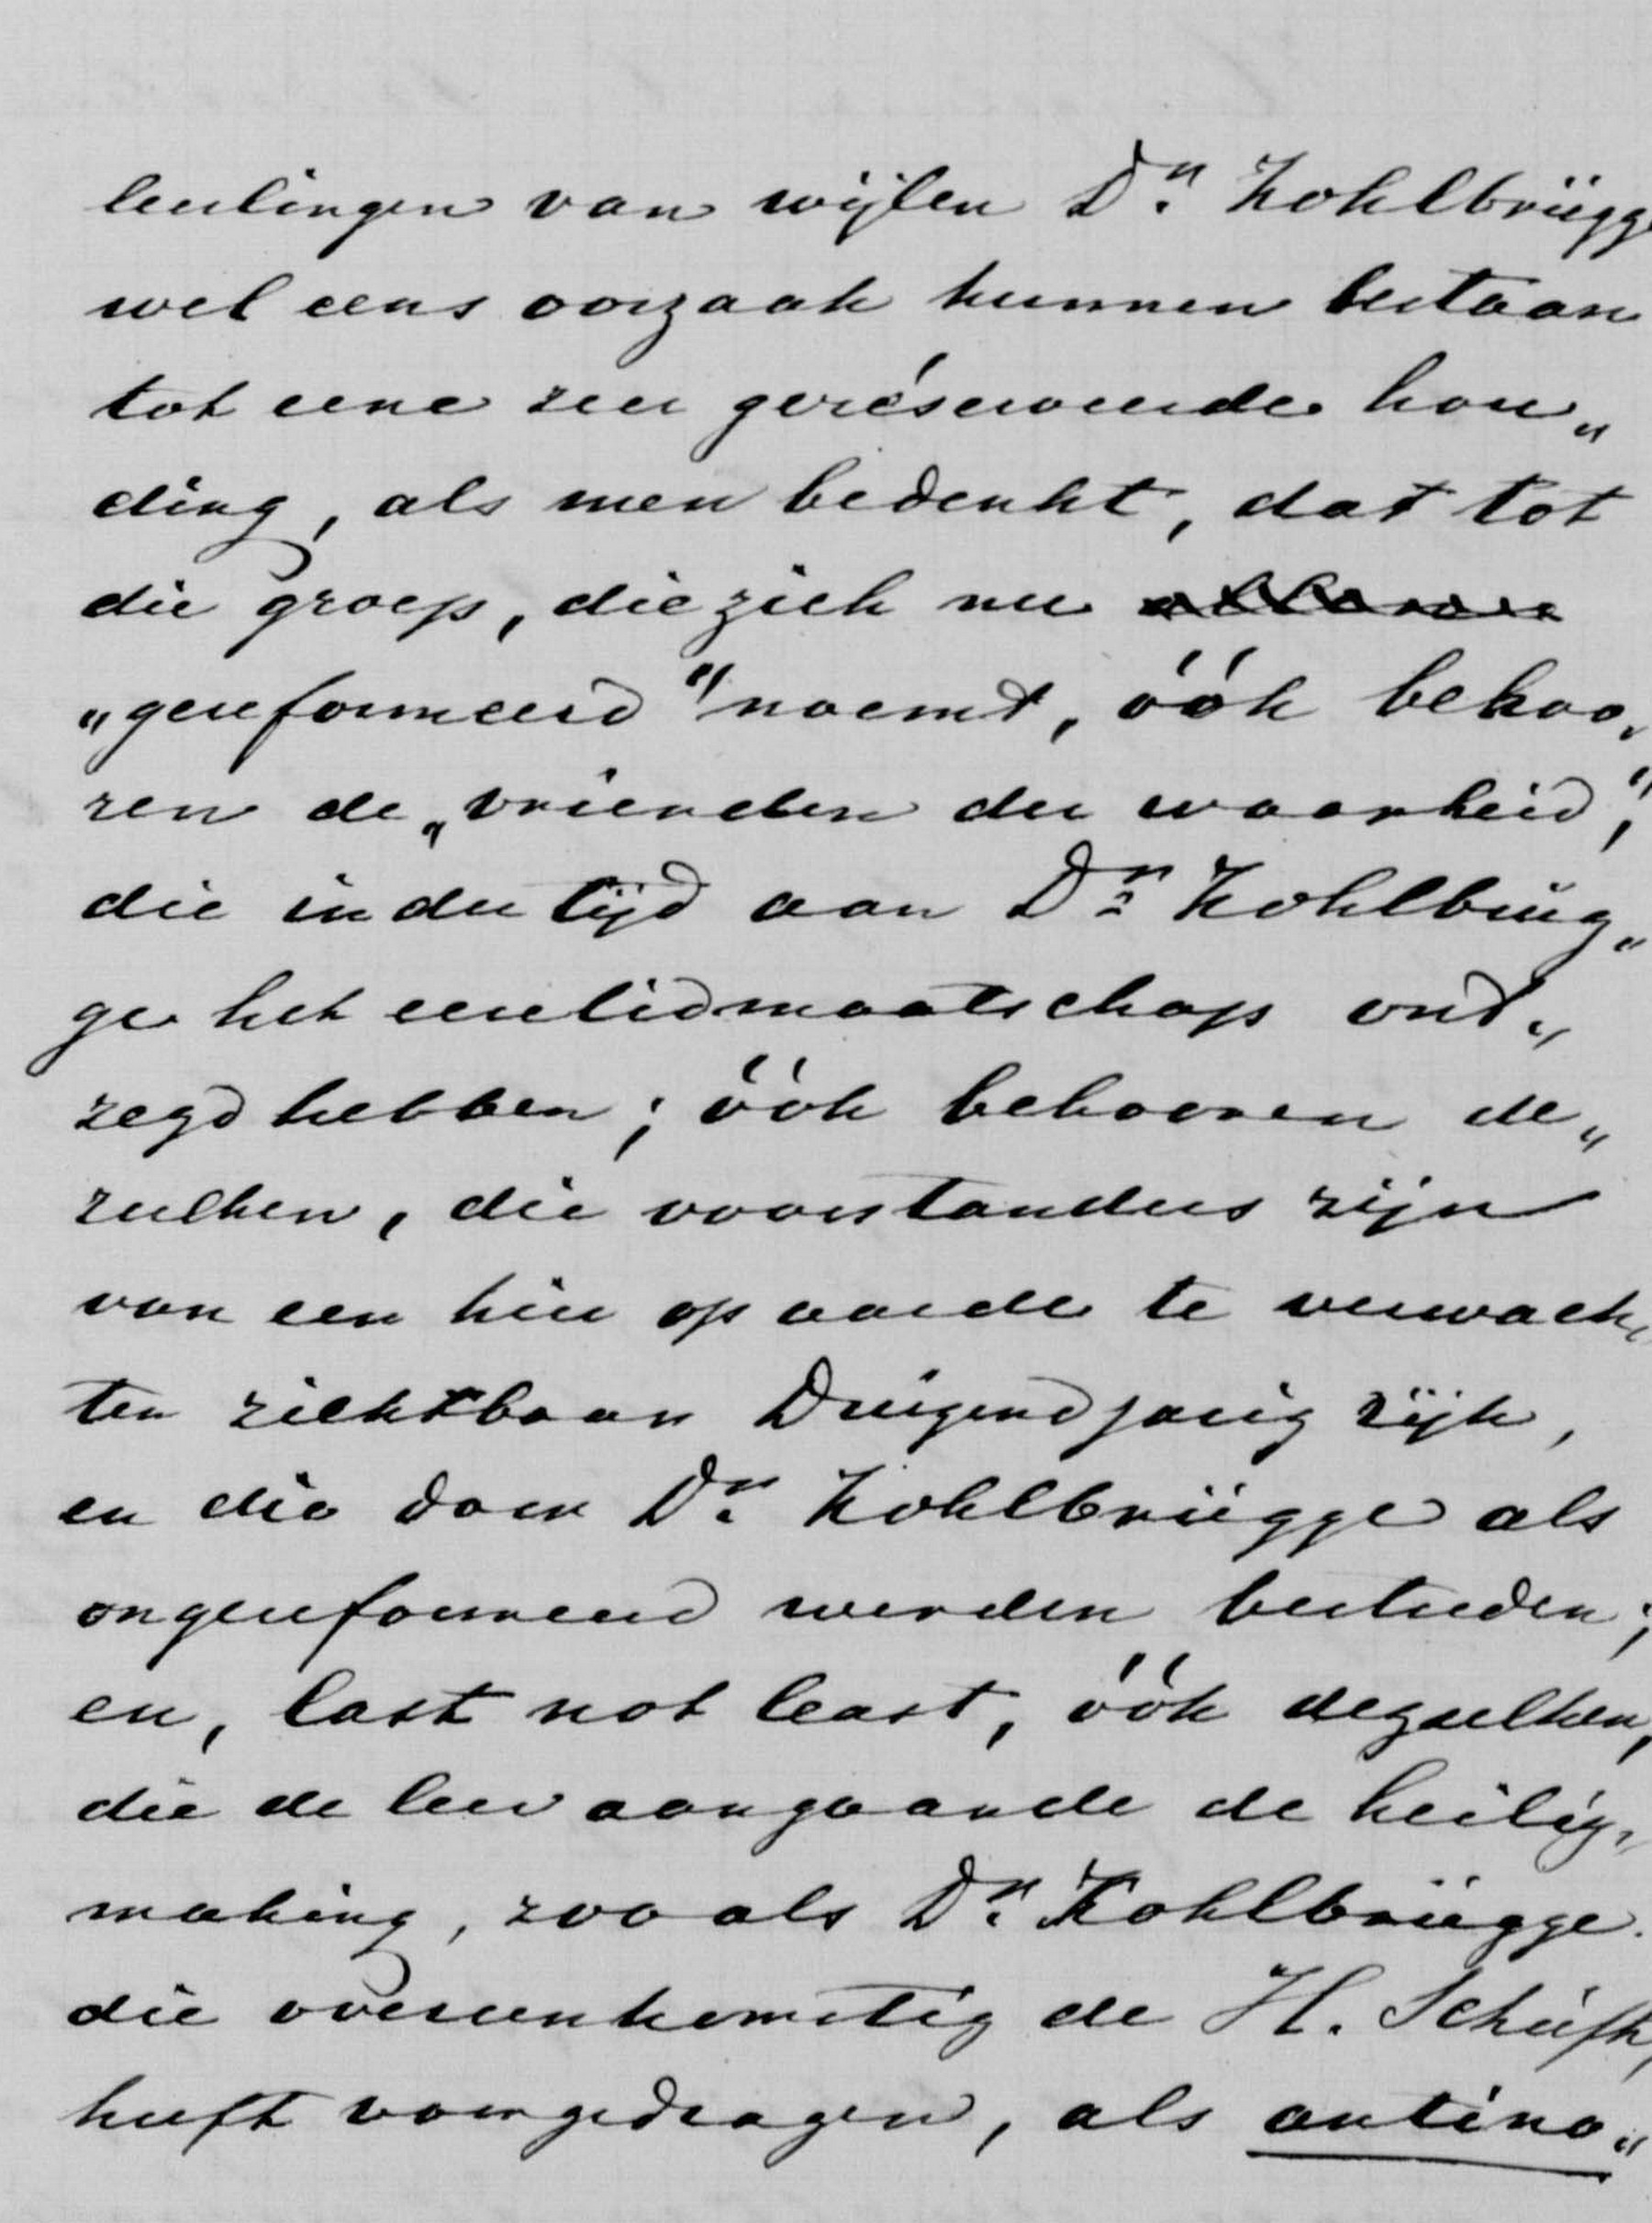 leerlingen van wijlen Dr. Kohlbrügge
wel eens oorzaak kunnen bestaan
tot eene zeer geréserveerde hou„
ding, als men bedenkt, dat tot
die groep, die zich nu
„gereformeerd" noemt, óók behoo„
ren de „vrienden der waarheid",
die indertijd aan Dr. Kohlbrüg„
ge het eerelidmaatschap ont„
zegd hebben; óók behooren de„
zulken, die voorstanders zijn
van een hier op aarde te verwach„
ten zichtbaar Duizendjarig rijk,
en die door Dr. Kohlbrügge als
ongereformeerd werden bestreden;
en, last not least, óók dezulken,
die de leer aangaande de heilig„
making, zooals Dr. Kohlbrügge
die overeenkomstig de H. Schrift,
heeft voorgedragen, als antino„